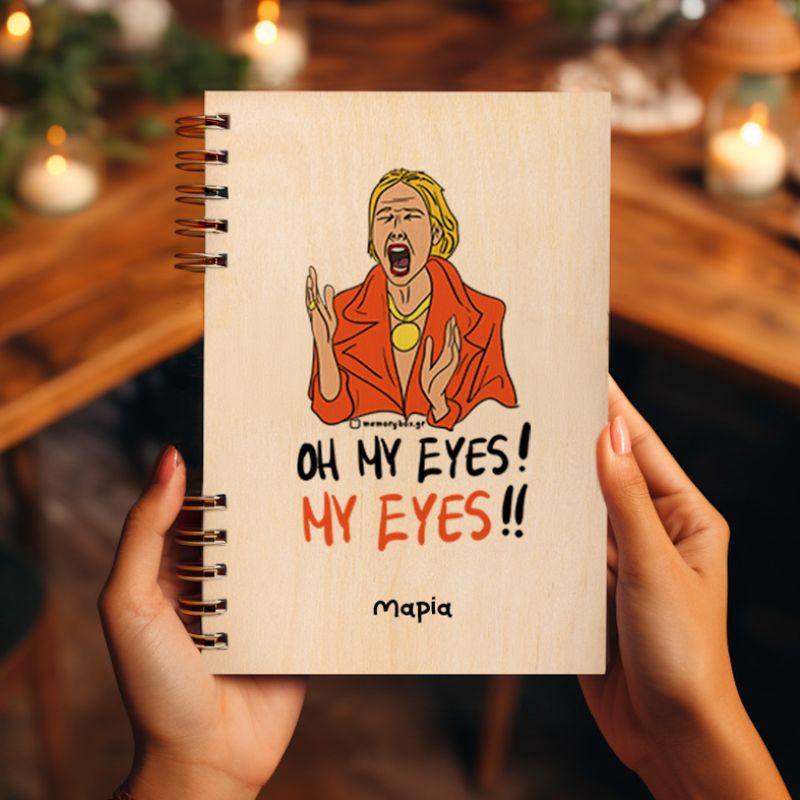 memorybox.gr
OH MY EYES!
MY EYES!!
Μαρία